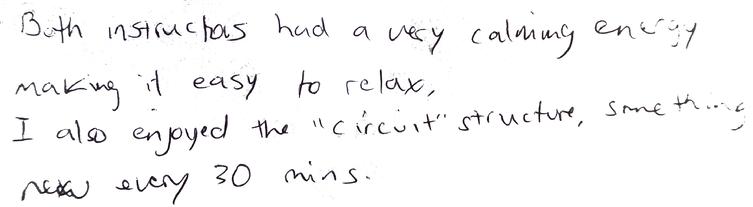 Both instructors had a very calming energy
making it easy to relax,
I also enjoyed the "circuit" structure, something
new every 30 mins.